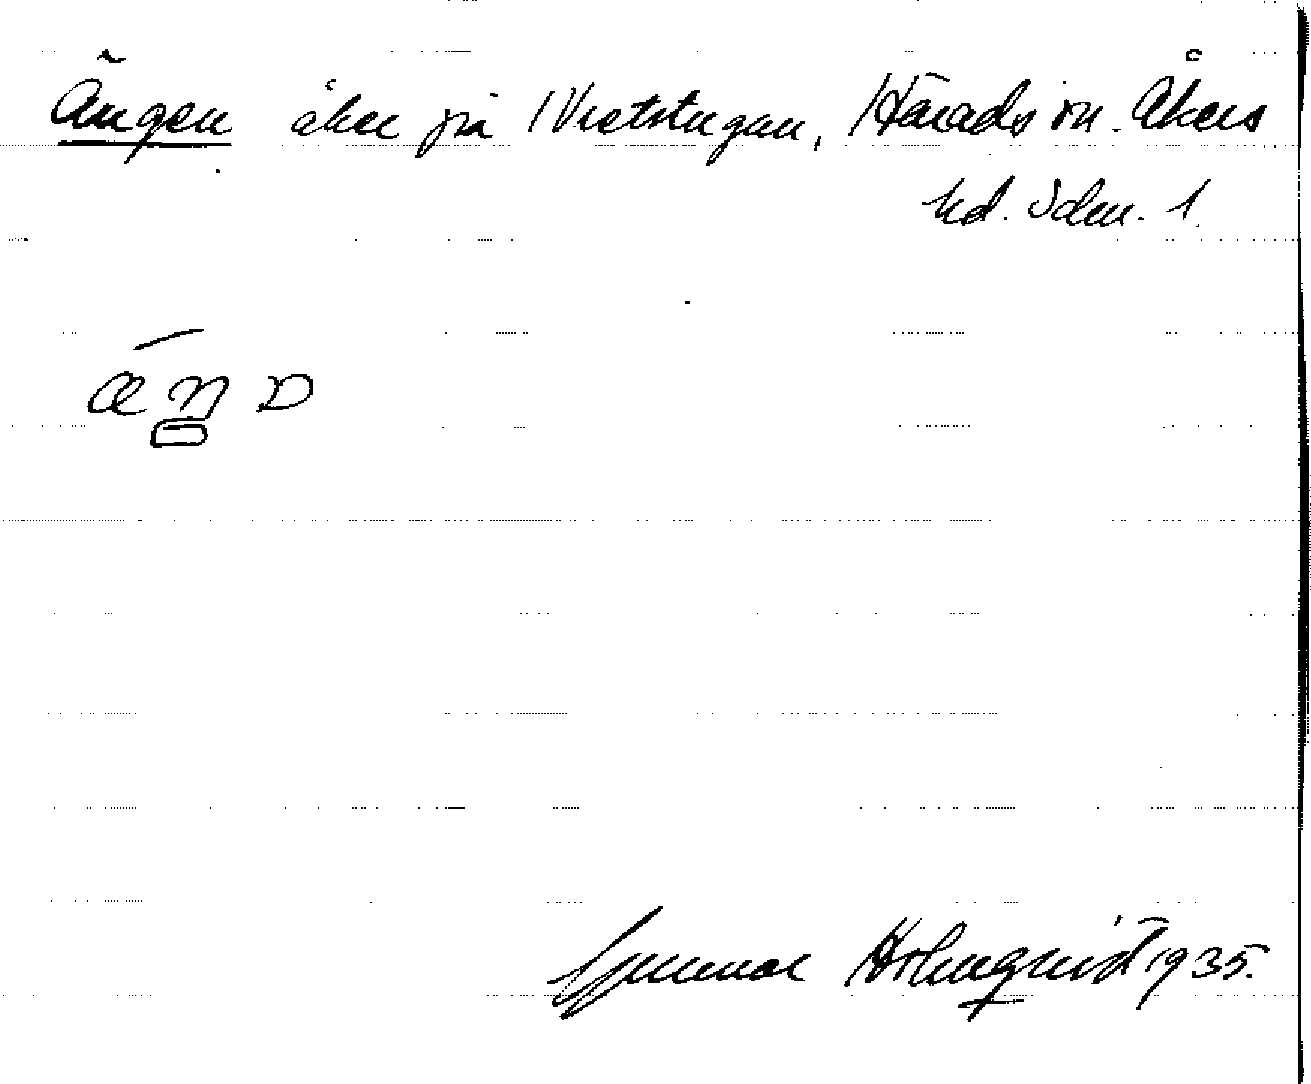 Ängen åker på Vretstugan, Härads sn. Åkers
hd. Sdm. 1.
Gunnar Holmqvist 1935.